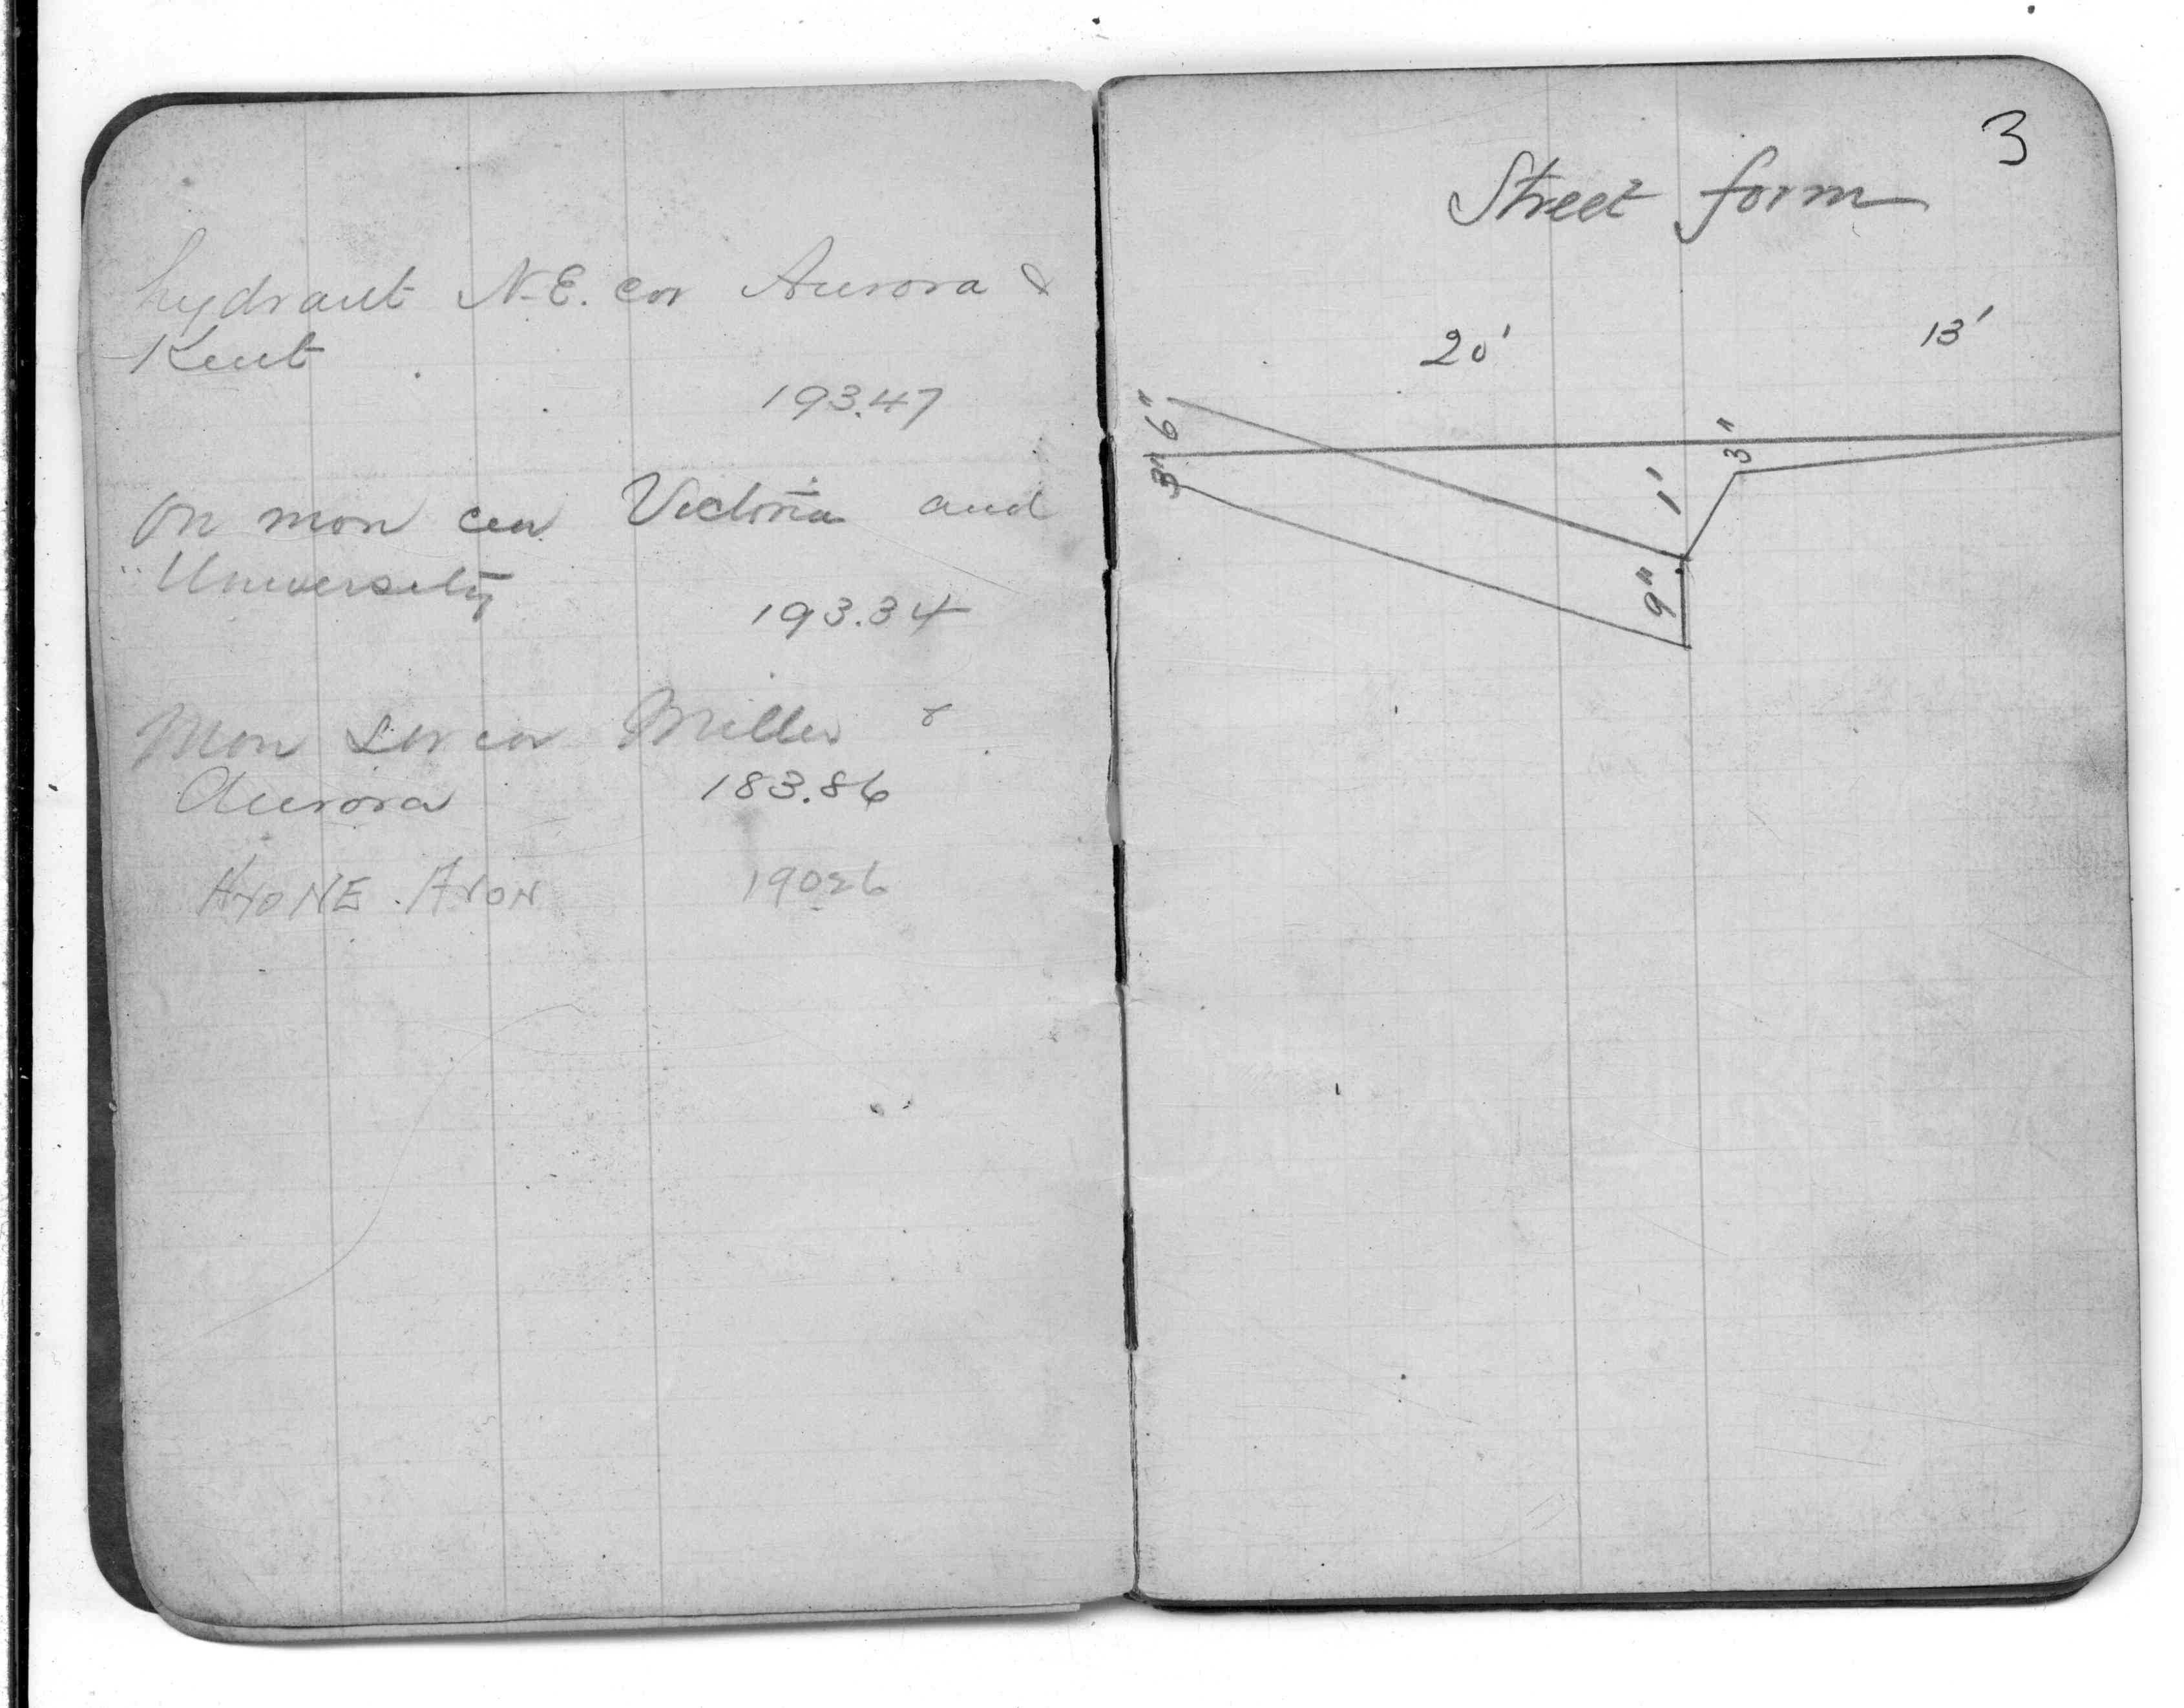 hydrant N.E. cor Aurora &
Kent
193.47
On mon cen Victoria and
University
193.34
Mon cor Miller &
Aurora 183.86
HYD NE. AVON 190
3
Street form
20' 13'
6"
3"
3"
1'
9"